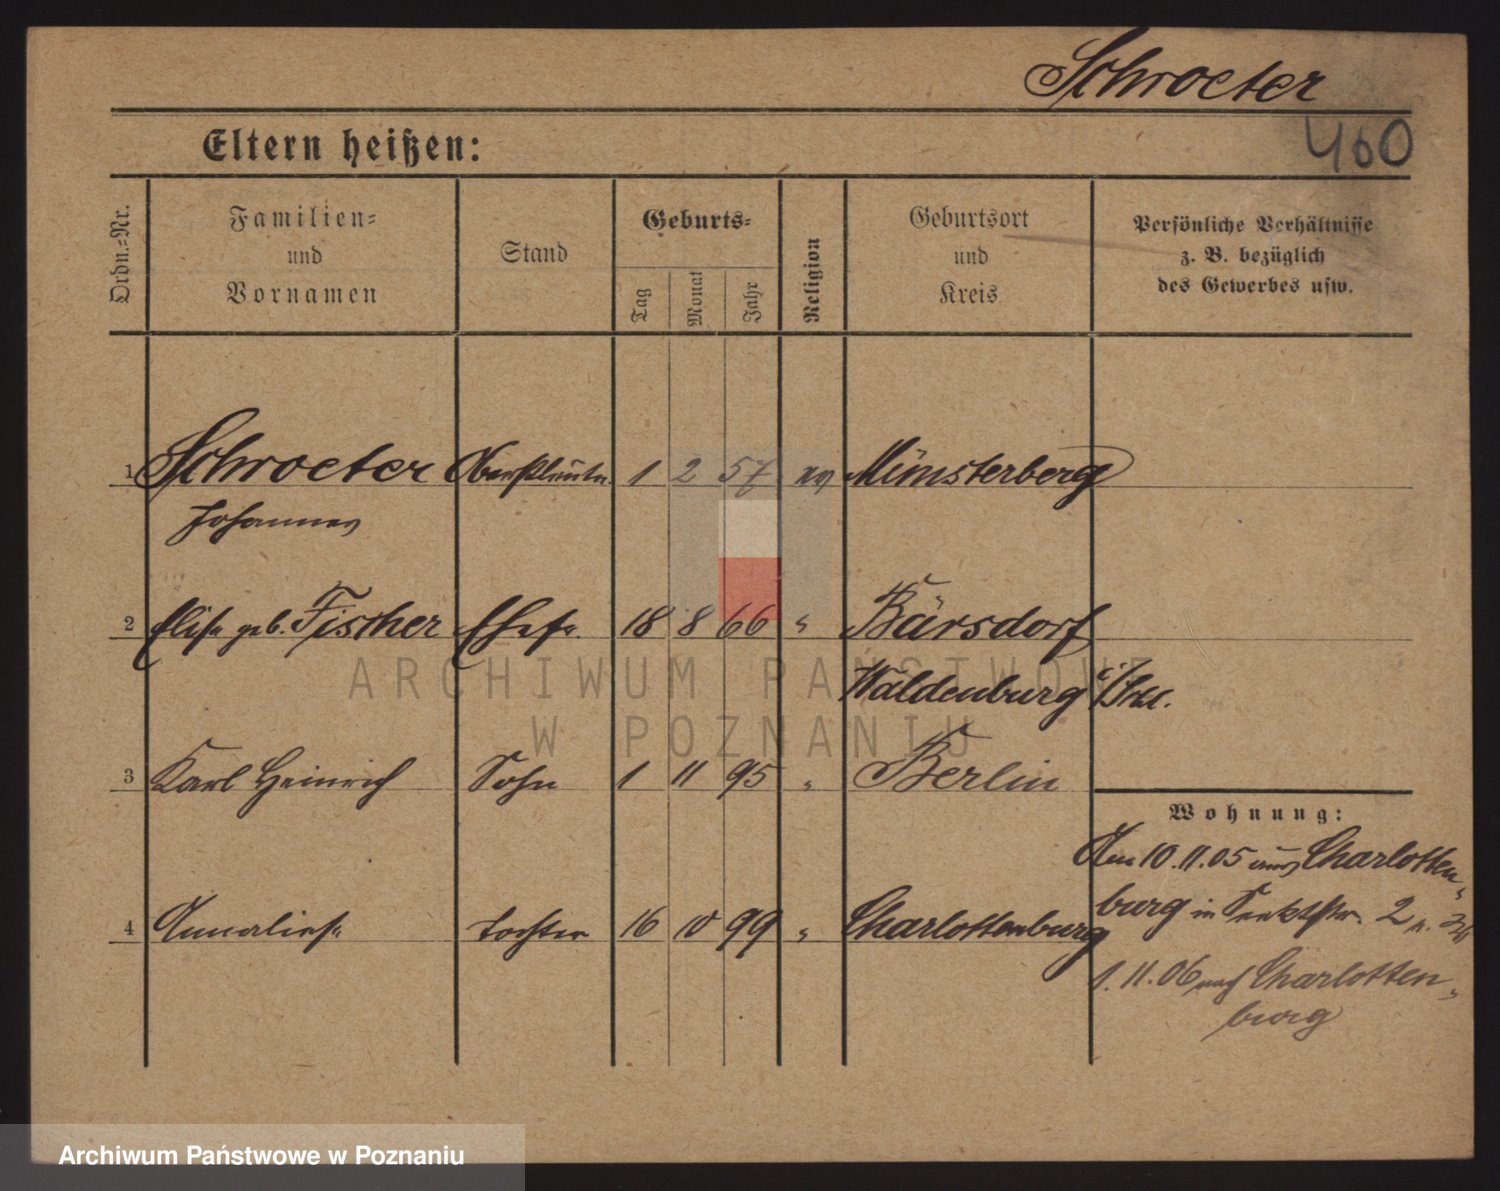 Schroeter
460
Eltern heißen:
Ordn.-Nr.
Familien-
und
Vornamen
Stand
Geburts-
Tag
Monat
Jahr
Religion
Geburtsort
und
Kreis
Persönliche Verhältnisse
z. B. bezüglich
des Gewerbes usw.
1 Schroeter Oberstleutn. 1 2 57 ev Münsterberg
Johannes
2 Elise geb. Fischer Ehefr. 18 8 66 " Bärsdorf
Waldenburg
ARCHIWUM PAŃSTWOWE
W POZNANIU
3 Karl Heinrich Sohn 1 11 95 " Berlin
Wohnung:
Am 10.11.05 aus Charlotten-
burg in 2
4 Annaliese Tochter 16 10 99 " Charlottenburg
1.11.06 nach Charlotten-
burg
Archiwum Państwowe w Poznaniu